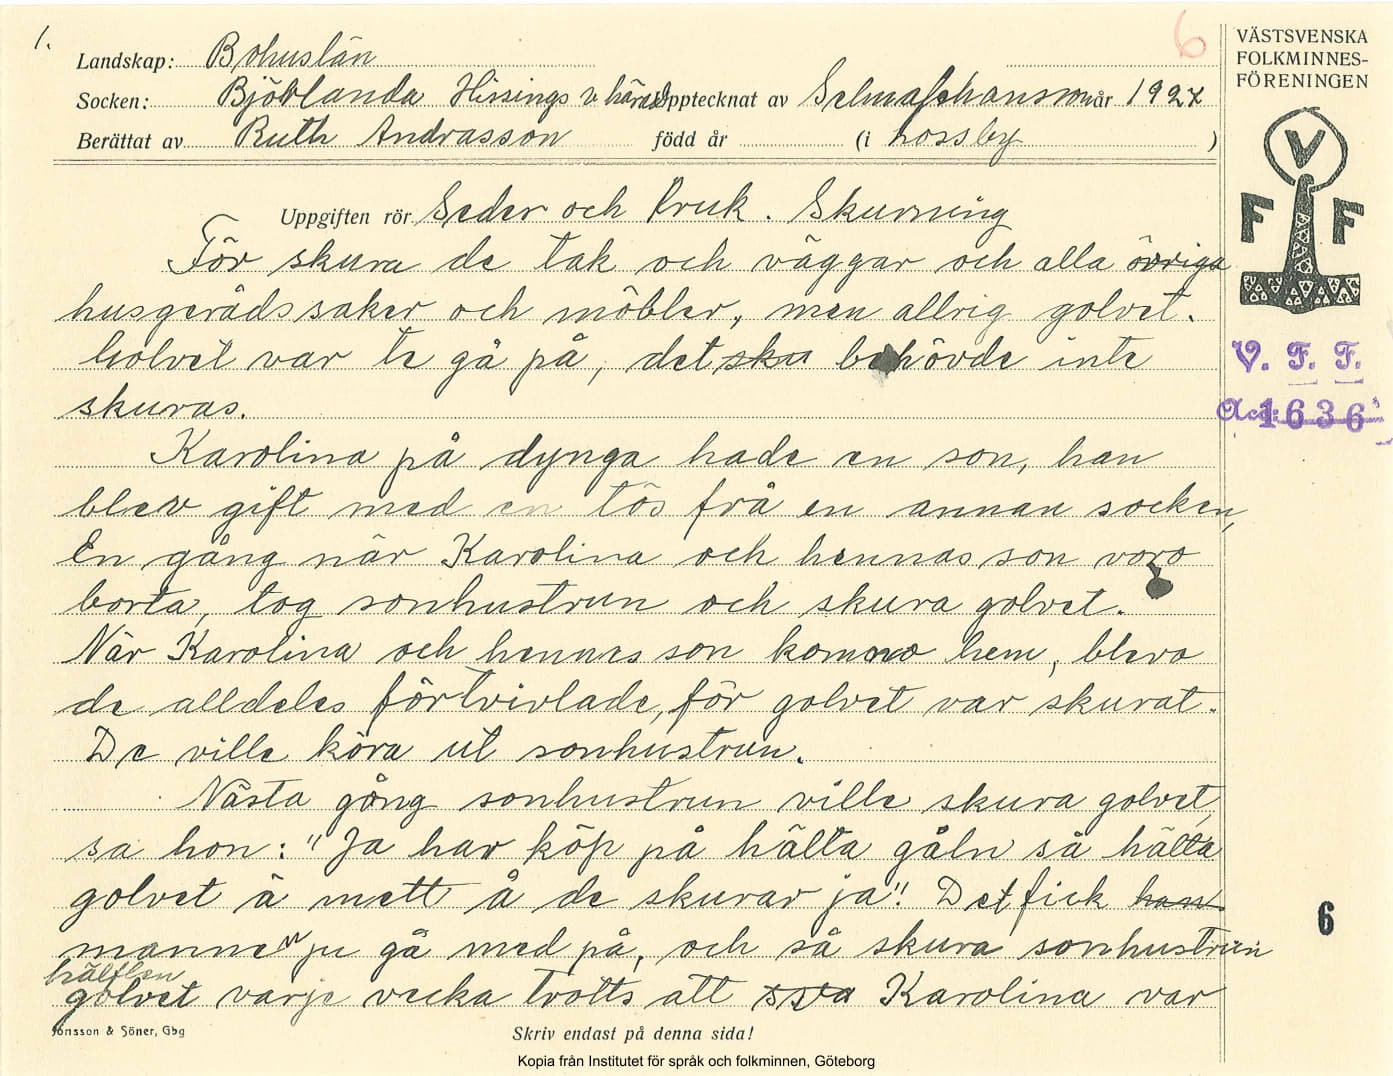 1.
6
Landskap: Bohuslän
Socken: Björlanda Hisings v. härad Upptecknat av Selma Johansson år 1927
Berättat av Ruth Andrasson född år (i Lossby )
VÄSTSVENSKA
FOLKMINNES-
FÖRENINGEN
V
F F
V. F. F.
Acc: 1636
Uppgiften rör Seder och bruk. Skurning
För skura de tak och väggar och alla övriga
husgerådssaker och möbler, men allrig golvet.
Golvet var te gå på, det sku behövde inte
skuras.
Karolina på dynga hade en son, han
blev gift med en tös frå en annan socken,
En gång när Karolina och hennas son voro
borta, tog sonhustrun och skura golvet.
När Karolina och hennas son kommo hem, blevo
de alldeles förtvivlade, för golvet var skurat.
De ville köra ut sonhustrun.
Nästa gång sonhustrun ville skura golvet,
sa hon: "Ja har köp på hälta gåln så hälta
golvet ä mett å de skurar ja". Det fick han
mannen ju gå med på, och så skura sonhustrun
hälften
golvet varje vecka trotts att Karolina var
6
Jonsson & Söner, Gbg
Skriv endast på denna sida!
Kopia från Institutet för språk och folkminnen, Göteborg